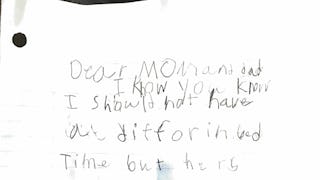 Dear Mom and dad
I know you know
I should not have
a differin bed
Time but hers